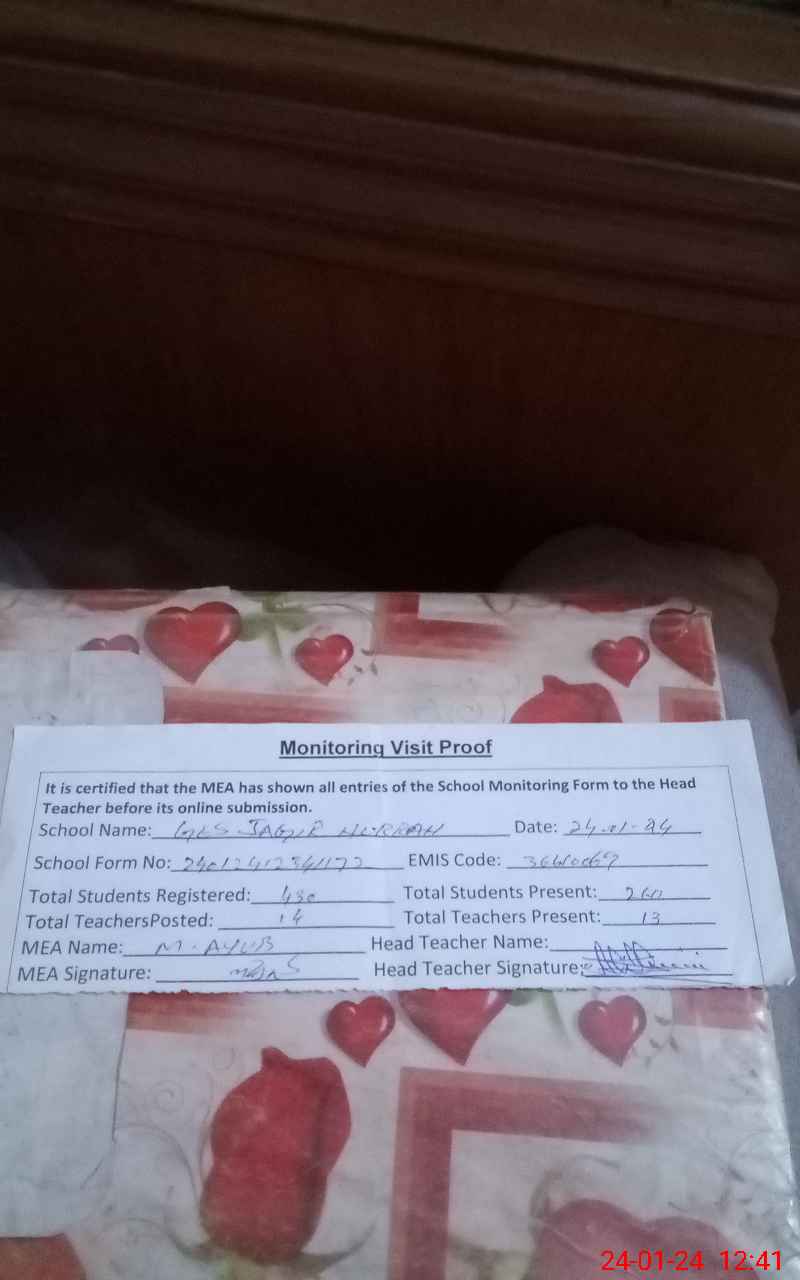 Monitoring Visit Proof
It is certified that the MEA has shown all entries of the School Monitoring Form to the Head
Teacher before its online submission.
School Name: JAGIR Date: 24-01-24
School Form No: EMIS Code:
Total Students Registered: 430 Total Students Present: 260
Total TeachersPosted: 14 Total Teachers Present: 13
MEA Name: M-AYUB Head Teacher Name:
MEA Signature: Head Teacher Signature:
24-01-24 12:41